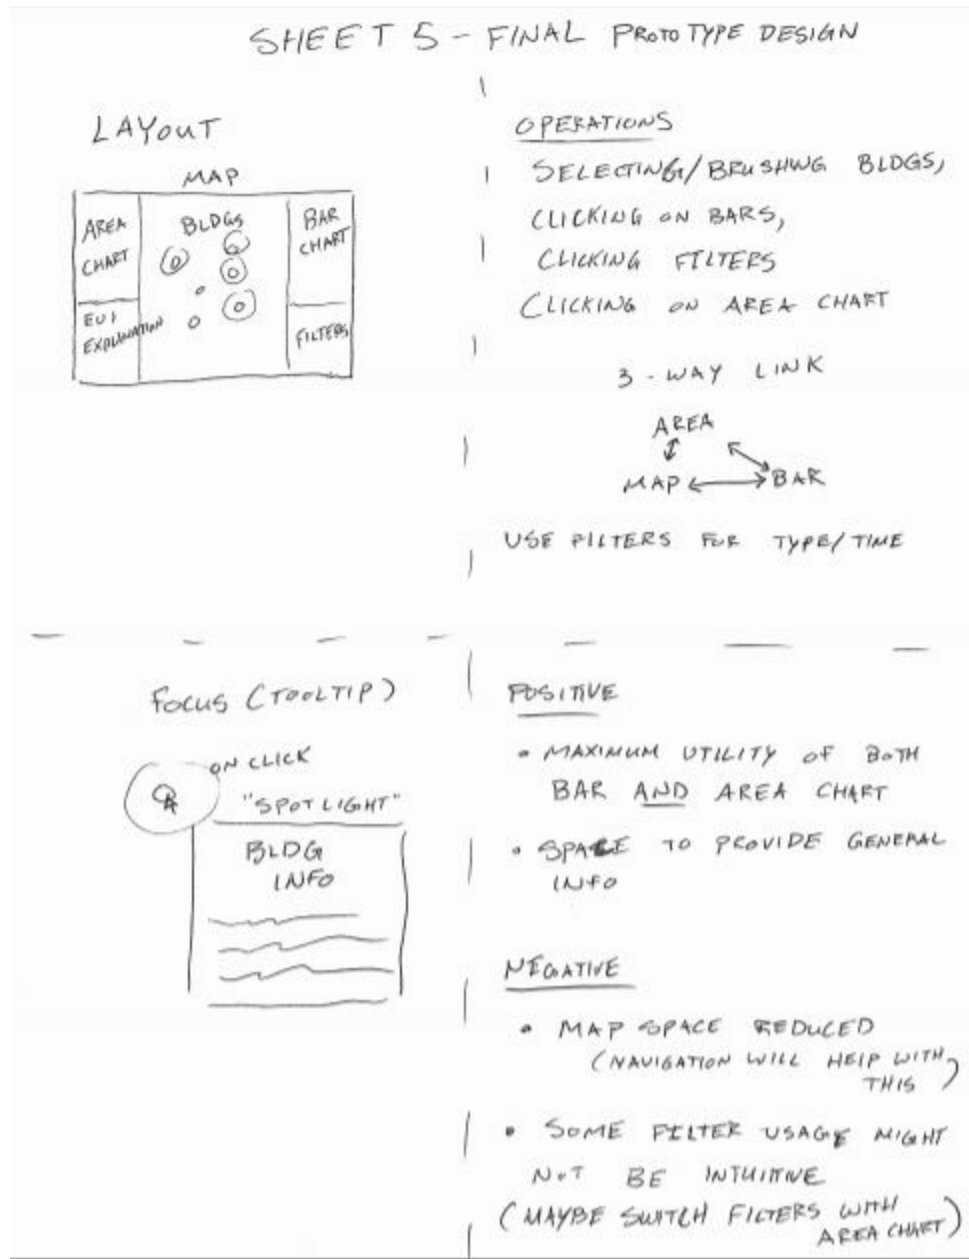 SHEET 5 - FINAL PROTOTYPE DESIGN
LAYOUT
MAP
AREA
CHART
BLDGS
BAR
CHART
EUI
EXPLANATION
FILTERS
OPERATIONS
SELECTING/BRUSHING BLDGS,
CLICKING ON BARS,
CLICKING FILTERS
CLICKING ON AREA CHART
3-WAY LINK
AREA
MAP BAR
USE FILTERS FOR TYPE/TIME
FOCUS (TOOLTIP)
ON CLICK
"SPOTLIGHT"
BLDG
INFO
POSITIVE
• MAXIMUM UTILITY OF BOTH
BAR AND AREA CHART
• SPACE TO PROVIDE GENERAL
INFO
NEGATIVE
• MAP SPACE REDUCED
(NAVIGATION WILL HELP WITH
THIS)
• SOME FILTER USAGE MIGHT
NOT BE INTUITIVE
(MAYBE SWITCH FILTERS WITH
AREA CHART)